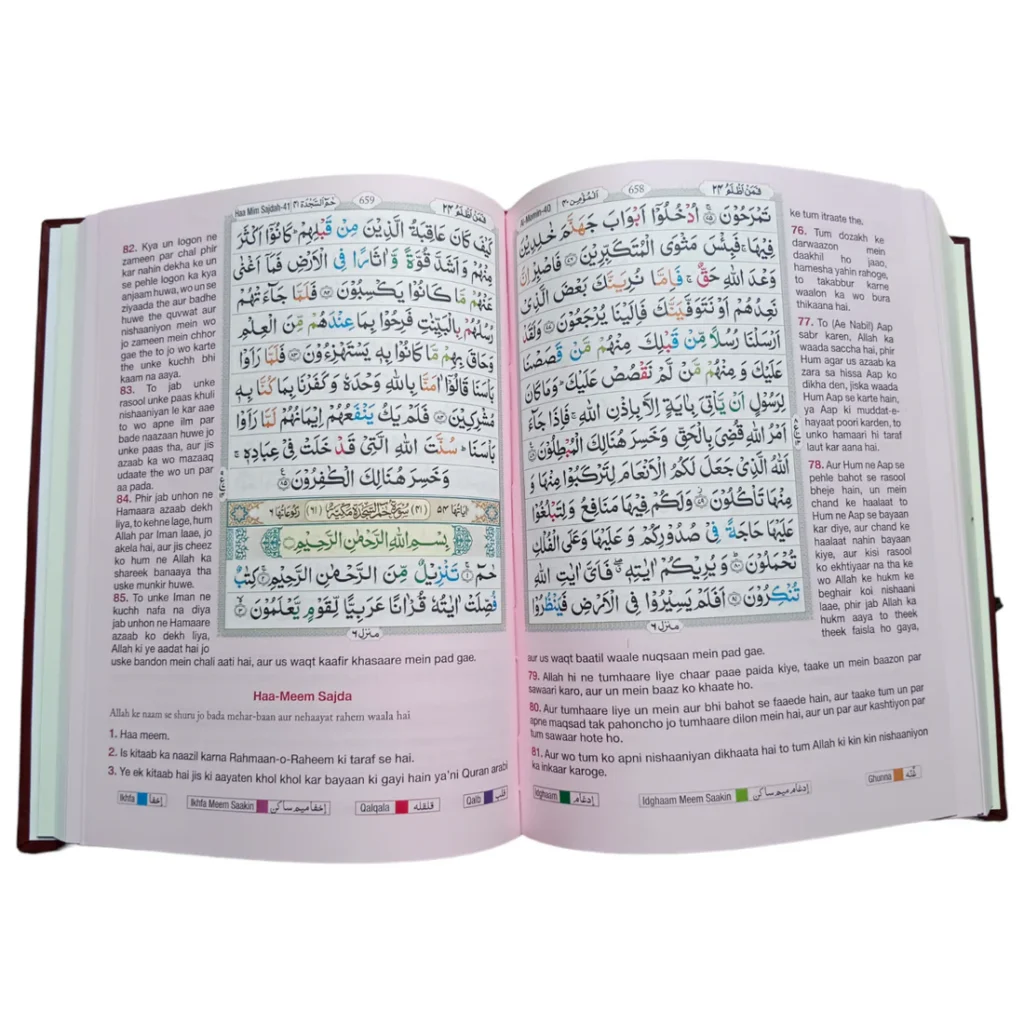 Al-Momin-40
اَلْمُؤْمِن ٤٠
658
فَمَنْ اَظْلَمُ ٢٤
تَمْرَحُوْنَ ۞ اُدْخُلُوْۤا اَبْوَابَ جَهَنَّمَ خٰلِدِيْنَ
فِيْهَا ۚ فَبِئْسَ مَثْوَى الْمُتَكَبِّرِيْنَ ۞ فَاصْبِرْ اِنَّ
وَعْدَ اللّٰهِ حَقٌّ ۚ فَاِمَّا نُرِيَنَّكَ بَعْضَ الَّذِىْ
نَعِدُهُمْ اَوْ نَتَوَفَّيَنَّكَ فَاِلَيْنَا يُرْجَعُوْنَ ۞ وَلَقَدْ
اَرْسَلْنَا رُسُلًا مِّنْ قَبْلِكَ مِنْهُمْ مَّنْ قَصَصْنَا
عَلَيْكَ وَ مِنْهُمْ مَّنْ لَّمْ نَقْصُصْ عَلَيْكَ ؕ وَمَا كَانَ
لِرَسُوْلٍ اَنْ يَّاْتِىَ بِاٰيَةٍ اِلَّا بِاِذْنِ اللّٰهِ ۚ فَاِذَا جَآءَ
اَمْرُ اللّٰهِ قُضِىَ بِالْحَقِّ وَخَسِرَ هُنَالِكَ الْمُبْطِلُوْنَ ۞
اَللّٰهُ الَّذِىْ جَعَلَ لَكُمُ الْاَنْعَامَ لِتَرْكَبُوْا مِنْهَا وَ
مِنْهَا تَاْكُلُوْنَ ۞ وَلَكُمْ فِيْهَا مَنَافِعُ وَلِتَبْلُغُوْا
عَلَيْهَا حَاجَةً فِىْ صُدُوْرِكُمْ وَ عَلَيْهَا وَعَلَى الْفُلْكِ
تُحْمَلُوْنَ ۞ وَ يُرِيْكُمْ اٰيٰتِهٖ ۖ فَاَىَّ اٰيٰتِ اللّٰهِ
تُنْكِرُوْنَ ۞ اَفَلَمْ يَسِيْرُوْا فِى الْاَرْضِ فَيَنْظُرُوْا
منزل ٦
ke tum itraate the.
76. Tum dozakh ke
darwaazon mein
daakhil ho jaao,
hamesha yahin rahoge,
to takabbur karne
waalon ka wo bura
thikaana hai.
77. To (Ae Nabi!) Aap
sabr karen, Allah ka
waada saccha hai, phir
Hum agar us azaab ka
zara sa hissa Aap ko
dikha den, jiska waada
Hum Aap se karte hain,
ya Aap ki muddat-e-
hayaat poori karden, to
unko hamaari hi taraf
laut kar aana hai.
78. Aur Hum ne Aap se
pehle bahot se rasool
bheje hain, un mein
chand ke haalaat to
Hum ne Aap se bayaan
kar diye, aur chand ke
haalaat nahin bayaan
kiye, aur kisi rasool
ko ekhtiyaar na tha ke
wo Allah ke hukm ke
beghair koi nishaani
laae, phir jab Allah ka
hukm aaya to theek
theek faisla ho gaya,
aur us waqt baatil waale nuqsaan mein pad gae.
79. Allah hi ne tumhaare liye chaar paae paida kiye, taake un mein baazon par
sawaari karo, aur un mein baaz ko khaate ho.
80. Aur tumhaare liye un mein aur bhi bahot se faaede hain, aur taake tum un par
apne maqsad tak pahoncho jo tumhaare dilon mein hai, aur un par aur kashtiyon par
tum sawaar hote ho.
81. Aur wo tum ko apni nishaaniyan dikhaata hai to tum Allah ki kin kin nishaaniyon
ka inkaar karoge.
Idghaam ادغام
Idghaam Meem Saakin ادغام میم ساکن
Ghunna غُنّه
Haa Mim Sajdah-41
حٰمٓ السَّجْدَة ٤١
659
فَمَنْ اَظْلَمُ ٢٤
كَيْفَ كَانَ عَاقِبَةُ الَّذِيْنَ مِنْ قَبْلِهِمْ ؕ كَانُوْۤا اَكْثَرَ
مِنْهُمْ وَ اَشَدَّ قُوَّةً وَّ اٰثَارًا فِى الْاَرْضِ فَمَآ اَغْنٰى
عَنْهُمْ مَّا كَانُوْا يَكْسِبُوْنَ ۞ فَلَمَّا جَآءَتْهُمْ
رُسُلُهُمْ بِالْبَيِّنٰتِ فَرِحُوْا بِمَا عِنْدَهُمْ مِّنَ الْعِلْمِ
وَحَاقَ بِهِمْ مَّا كَانُوْا بِهٖ يَسْتَهْزِءُوْنَ ۞ فَلَمَّا رَاَوْا
بَاْسَنَا قَالُوْۤا اٰمَنَّا بِاللّٰهِ وَحْدَهٗ وَ كَفَرْنَا بِمَا كُنَّا بِهٖ
مُشْرِكِيْنَ ۞ فَلَمْ يَكُ يَنْفَعُهُمْ اِيْمَانُهُمْ لَمَّا رَاَوْا
بَاْسَنَا ؕ سُنَّتَ اللّٰهِ الَّتِىْ قَدْ خَلَتْ فِىْ عِبَادِهٖ ۚ
وَ خَسِرَ هُنَالِكَ الْكٰفِرُوْنَ ۞
اٰيَاتُهَا ٥٤ (٤١) سُوْرَةُ حٰمٓ السَّجْدَةِ مَكِّيَّةٌ (٦١) رُكُوْعَاتُهَا ٦
بِسْمِ اللّٰهِ الرَّحْمٰنِ الرَّحِيْمِ
حٰمٓ ۞ تَنْزِيْلٌ مِّنَ الرَّحْمٰنِ الرَّحِيْمِ ۞ كِتٰبٌ
فُصِّلَتْ اٰيٰتُهٗ قُرْاٰنًا عَرَبِيًّا لِّقَوْمٍ يَّعْلَمُوْنَ ۞
منزل ٦
82. Kya un logon ne
zameen par chal phir
kar nahin dekha ke un
se pehle logon ka kya
anjaam huwa, wo un se
ziyaada the aur badhe
huwe the quvwat aur
nishaaniyon mein wo
jo zameen mein chhor
gae the to jo wo karte
the unke kuchh bhi
kaam na aaya.
83. To jab unke
rasool unke paas khuli
nishaaniyan le kar aae
to wo apne ilm par
bade naazaan huwe jo
unke paas tha, aur jis
azaab ka wo mazaaq
udaate the wo un par
aa pada.
84. Phir jab unhon ne
Hamaara azaab dekh
liya, to kehne lage, hum
Allah par Iman laae, jo
akela hai, aur jis cheez
ko hum ne Allah ka
shareek banaaya tha
uske munkir huwe.
85. To unke Iman ne
kuchh nafa na diya
jab unhon ne Hamaare
azaab ko dekh liya,
Allah ki ye aadat hai jo
uske bandon mein chali aati hai, aur us waqt kaafir khasaare mein pad gae.
Haa-Meem Sajda
Allah ke naam se shuru jo bada mehar-baan aur nehaayat rahem waala hai
1. Haa meem.
2. Is kitaab ka naazil karna Rahmaan-o-Raheem ki taraf se hai.
3. Ye ek kitaab hai jis ki aayaten khol khol kar bayaan ki gayi hain ya'ni Quran arabi
Ikhfa إخفا
Ikhfa Meem Saakin إخفا میم ساکن
Qalqala قلقله
Qalb قلب